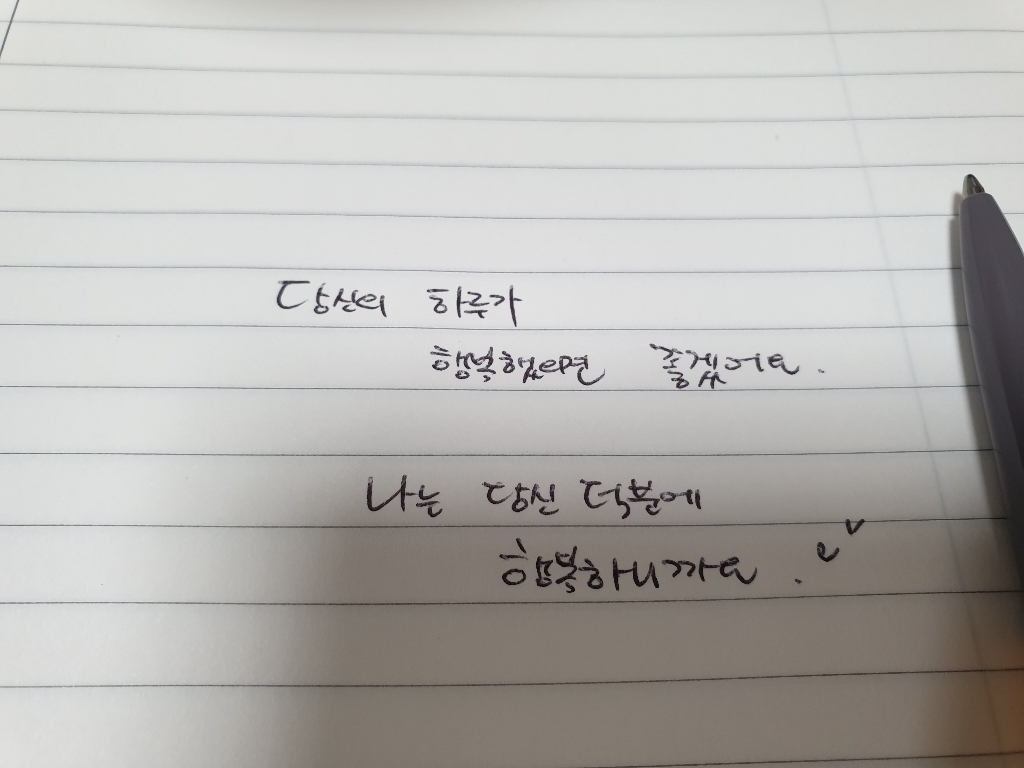 당신의 하루가
행복했으면 좋겠어요.
나는 당신 덕분에
행복하니까요.